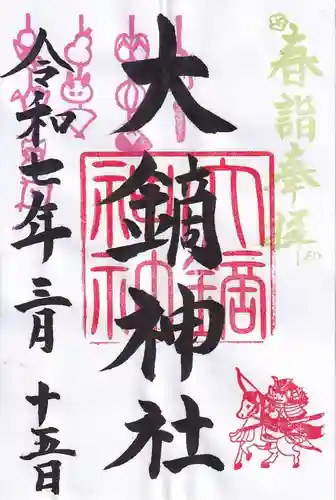 春詣奉拝
大鏑神社
大鏑神社
令和七年三月十五日